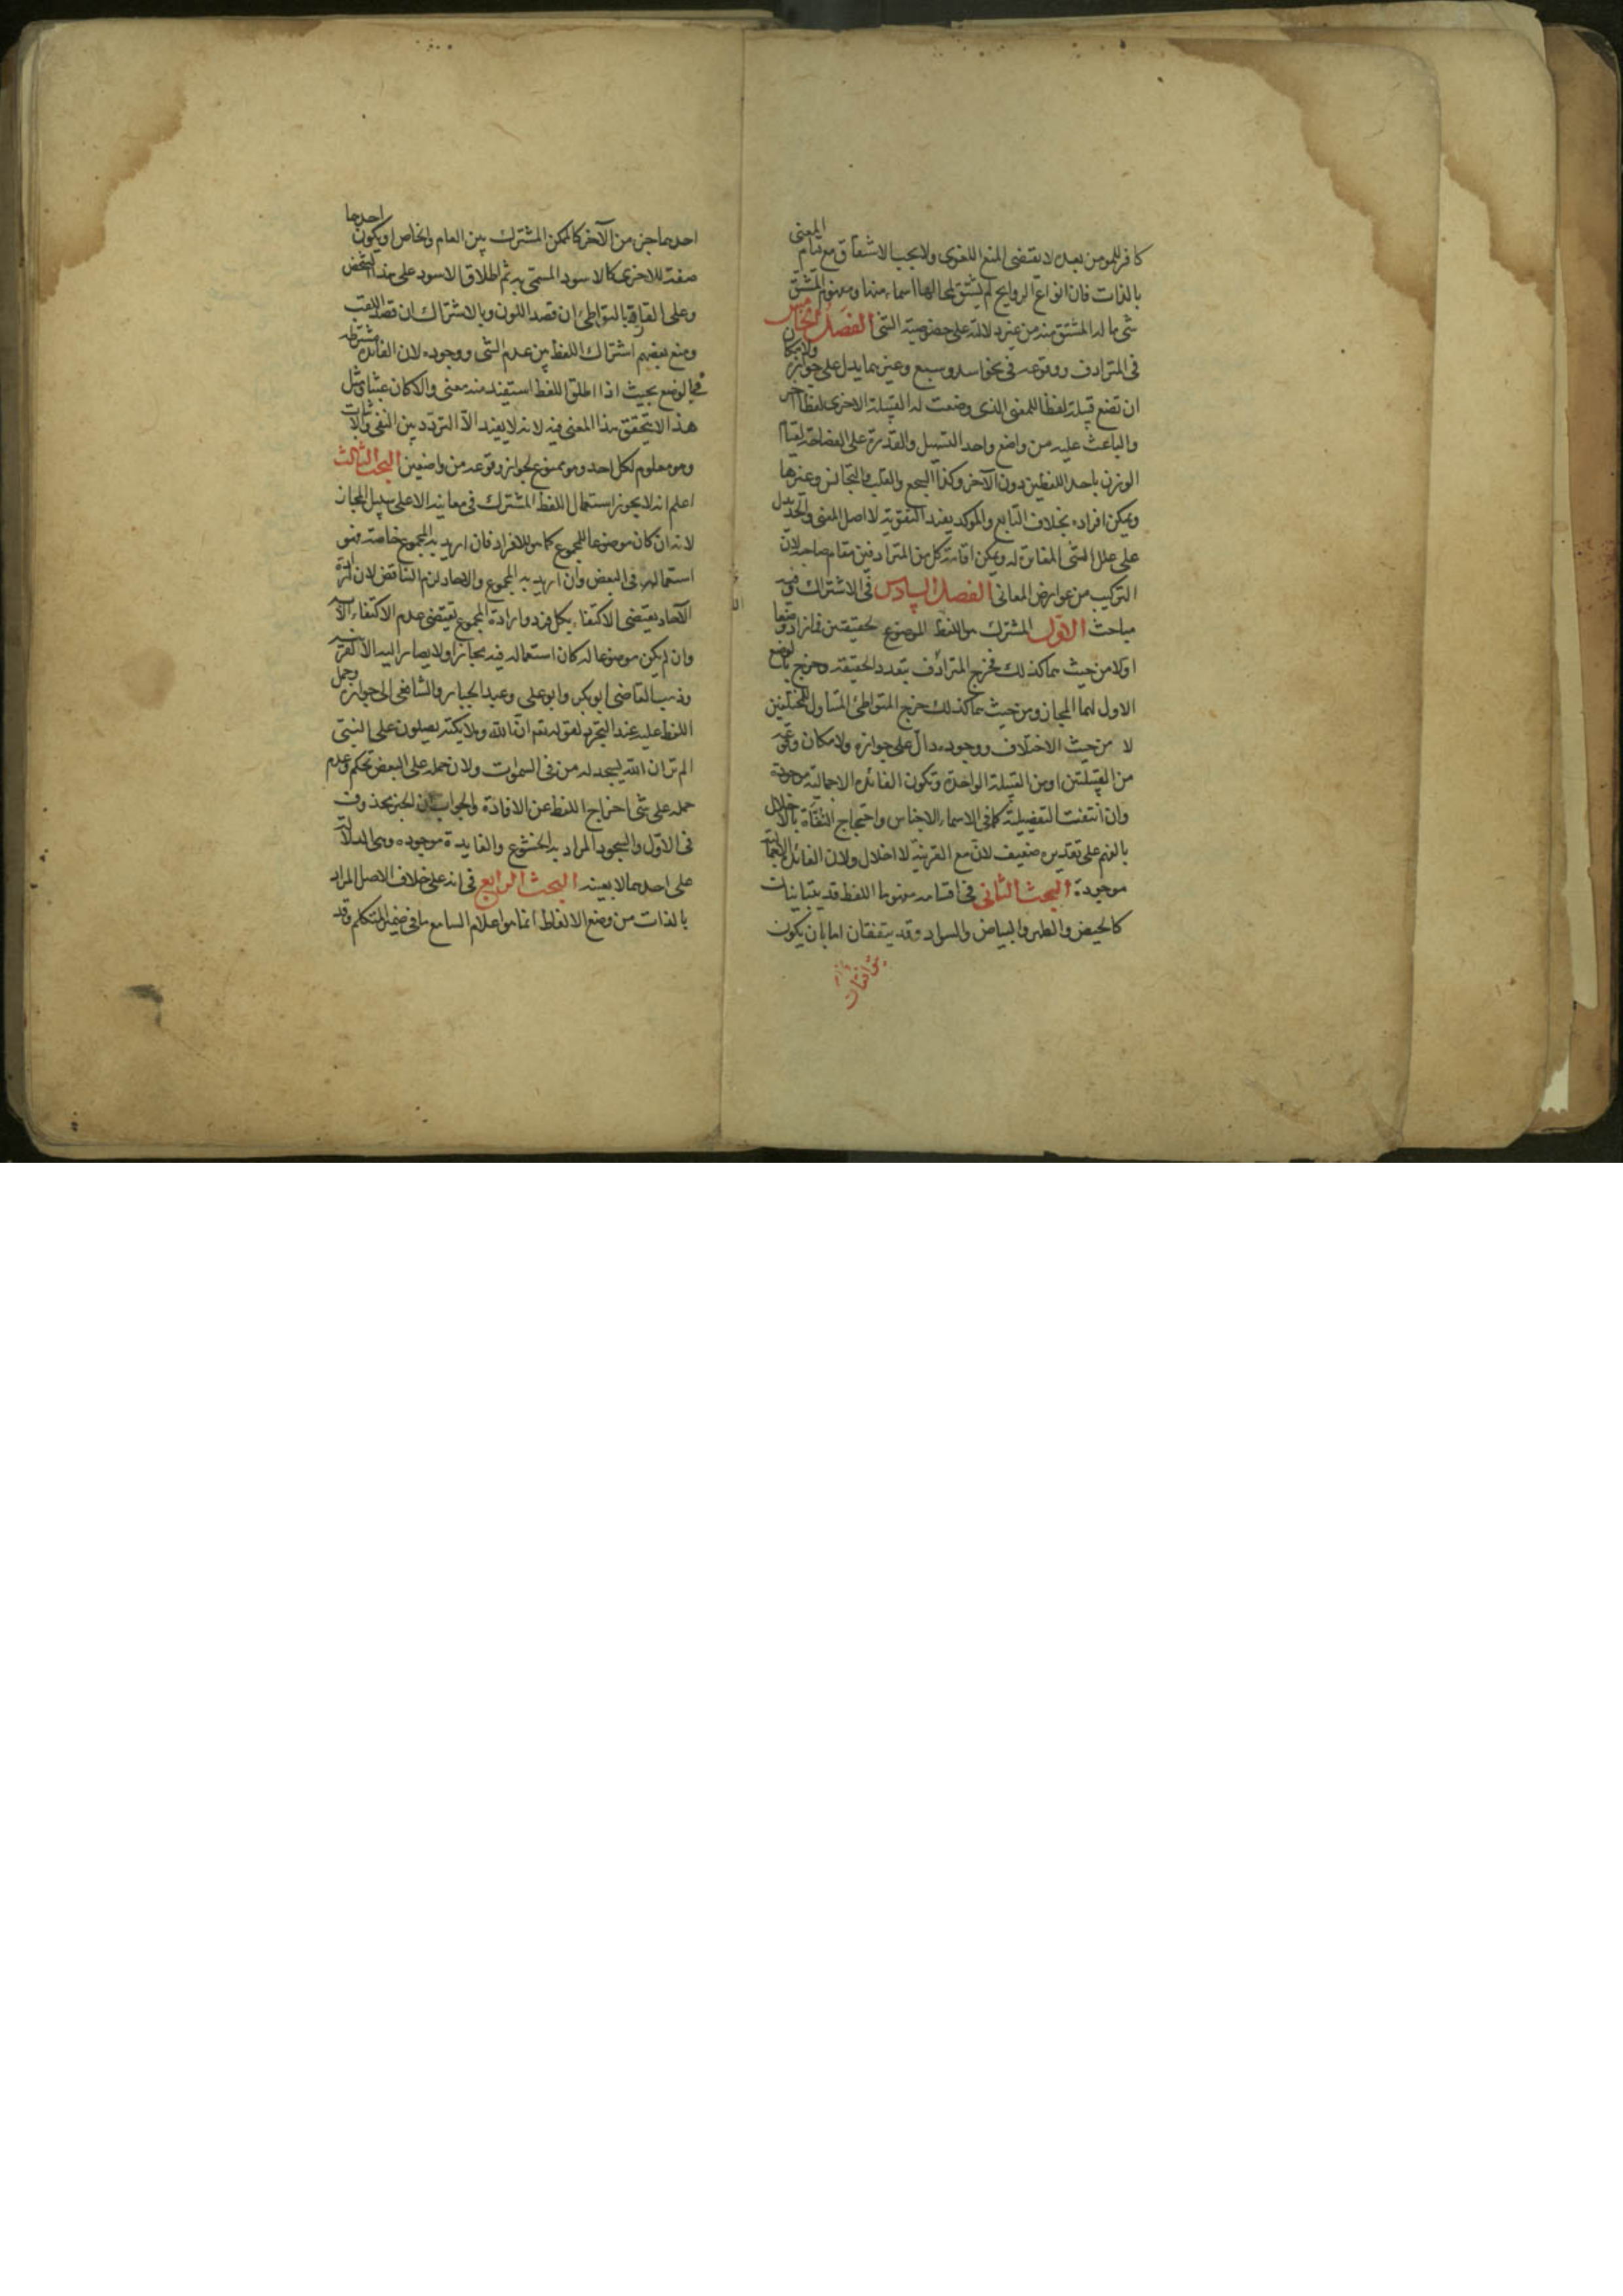 كافر للمومن بعده لا يقتضى المنع اللغوى ولا يجب الاشتقاق مع قيام المعنى
بالذات فان انواع الروايح لم يشتق لمحالها اسماء منها ومفهوم المشتق
شى ما له المشتق منه من غير دلالة على خصوصية الشى الفصل الخامس
فى الترادف ووقوعه فى نحو اسد وسبع وغيرهما يدل على جوازه ولامكان
ان تضع قبيلة لفظا للمعنى الذى وضعت له القبيلة الاخرى لفظا آخر
والباعث عليه من واضع واحد التسهيل والقدرة على الفصاحة لقيام
الوزن باحد اللفظين دون الآخر وكذا السجع والقلب والتجانس وغيرها
ويمكن افراده بخلاف التابع والموكد يفيد التقوية لا اصل المعنى والحد يدل
على علل الشى المغايرة له ويمكن اقامة كل من المترادفين مقام صاحبه لان
التركيب من عوارض المعانى الفصل السادس فى الاشتراك وفيه
مباحث الاول المشترك هو اللفظ الموضوع لحقيقتين فما زاد وضعا
اولا من حيث هما كذلك فخرج المترادف بتعدد الحقيقة وخرج بالوضع
الاول لهما المجاز ومن حيث هما كذلك خرج المتواطئ المتناول للمختلفين
لا من حيث الاختلاف ووجوده دال على جوازه ولامكان وقوعه
من القبيلتين او من القبيلة الواحدة وتكون الفائدة الاجمالية موجودة
وان انتفت التفصيلية كما فى الاسماء الاجناس واحتجاج النفاة بالاخلال
بالفهم على تقديره ضعيف لان مع القرينة لا اخلال ولان الفائدة الاجمالية
موجودة البحث الثانى فى اقسامه مفهوما اللفظ قد يتباينان
كالحيض والطهر والبياض والسواد وقد يتفقان اما بان يكون
احدهما جزء من الآخر كالممكن المشترك بين العام والخاص او يكون احدهما
صفة للاخرى كالاسود المسمى به ثم اطلاق الاسود على هذا الشخص
وعلى القار بالتواطئ ان قصد اللون وبالاشتراك ان قصد اللقب
ومنع بعضهم اشتراك اللفظ بين عدم الشى ووجوده لان الفائدة مشترطة
فى الوضع بحيث اذا اطلق اللفظ استفيد منه معنى والا كان عبثا ومثل
هذا لا يتحقق هذا المعنى فيه لانه لا يفيد الا التردد بين النفى والاثبات
وهو معلوم لكل احد وهو ممنوع لجواز وقوعه من واضعين البحث الثالث
اعلم انه لا يجوز استعمال اللفظ المشترك فى معانيه الا على سبيل المجاز
لانه ان كان موضوعا للمجموع كما هو للافراد فان اريد به المجموع خاصة فهو
استعماله فى البعض وان اريد به المجموع والاحاد لزم التناقض لان ارادة
الآحاد يقتضى الاكتفاء بكل فرد وارادة المجموع يقتضى عدم الاكتفاء الا به
وان لم يكن موضوعا له كان استعماله فيه مجازا ولا يصار اليه الا لقرينة
وذهب القاضى ابو بكر وابو على وعبد الجبار والشافعى الى جواز وحمل
اللفظ عليه عند التجرد لقوله تعم ان الله وملايكته يصلون على النبى
الم تر ان الله يسجد له من فى السموات ولان حمله على البعض تحكم وعدم
حمله على شى اخراج اللفظ عن الافادة والجواب ان الخبر محذوف
فى الاول والسجود المراد به الخشوع والفايدة موجوده وهى الدلالة
على احدهما لا بعينه البحث الرابع فى انه على خلاف الاصل المراد
بالذات من وضع الالفاظ انما هو اعلام السامع ما فى ضمير المتكلم وقد